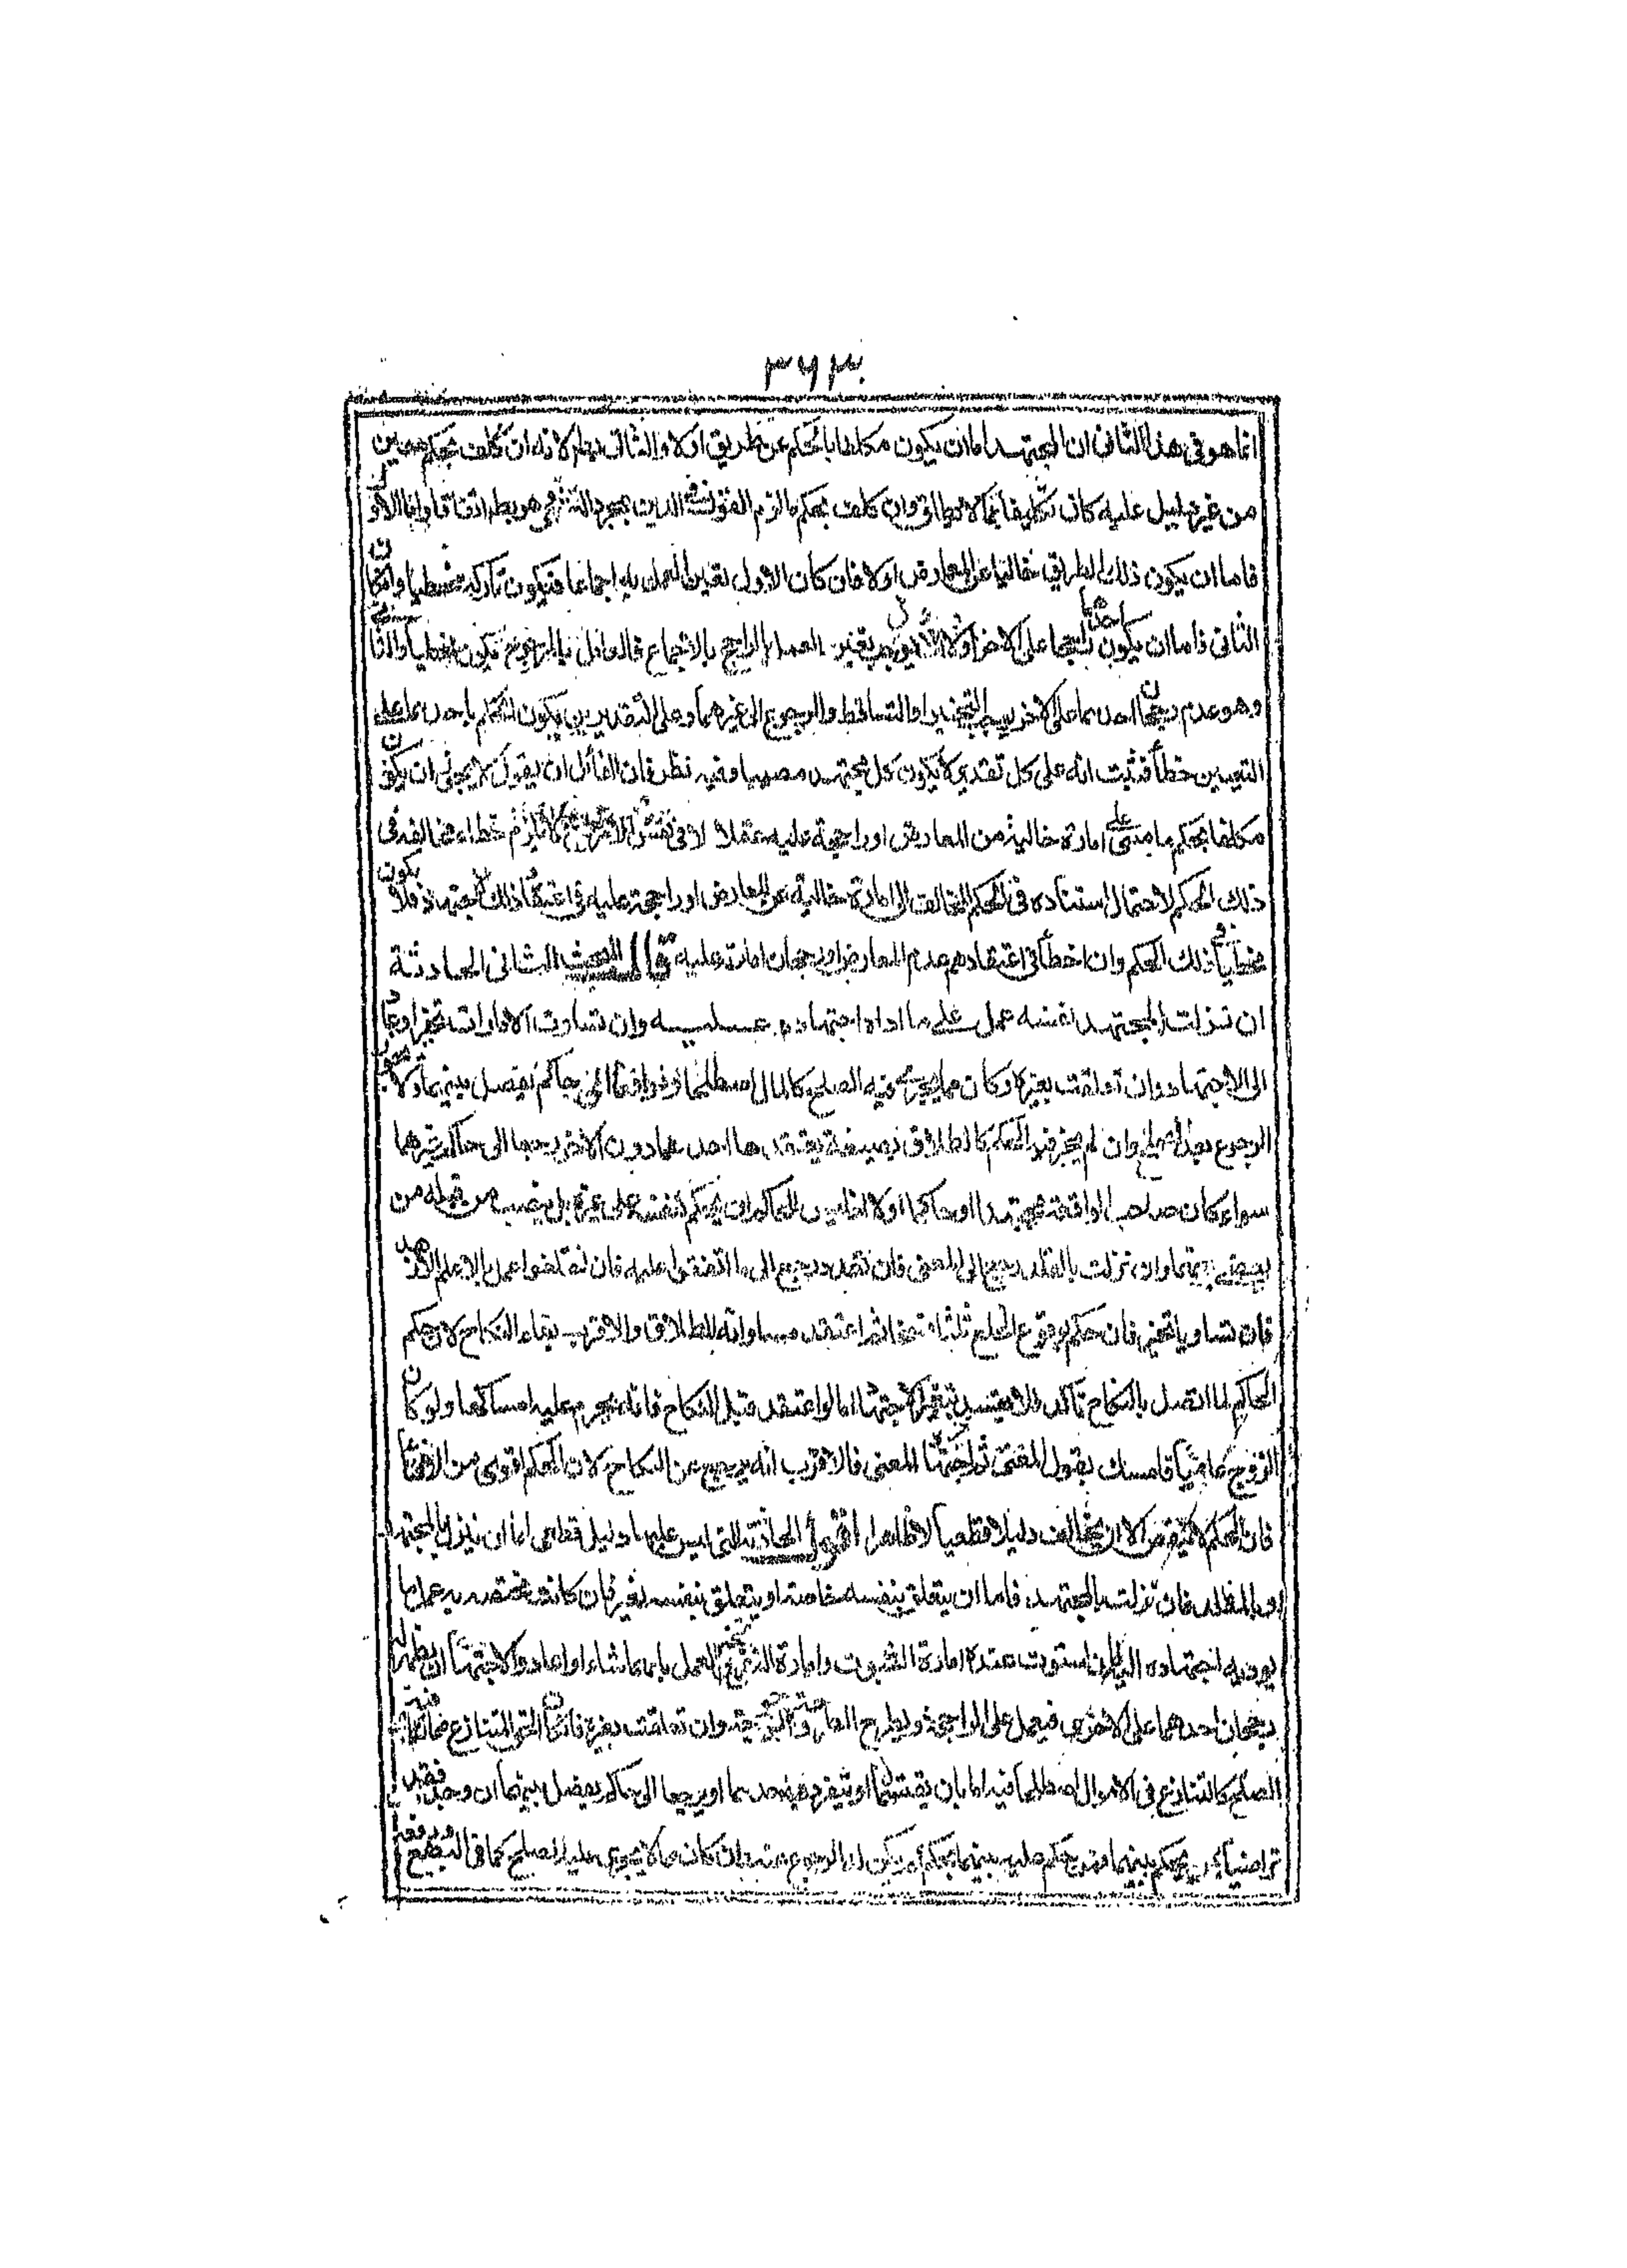 ٣٦٣
انما هو فى هذا الثانى ان المجتهد اما ان يكون مكلفا بالحكم عن طريق اولا والثانى لانه ان كلف بحكم معين
من غير دليل عليه كان تكليفا بما لا يطاق وان كلف بحكم ما لزم القول فى الدين بمجرد التشهى وهو بط اتفاقا واما الاول
فاما ان يكون ذلك الطريق خاليا عن المعارض اولا فان كان الاول تعين العمل به اجماعا فيكون تاركه مخطيا وان كان
الثانى فاما ان يكون احدهما راجحا على الاخر اولا والاول يوجب تعين العمل بالراجح بالاجماع فالعامل بالمرجوح يكون مخطيا والثانى
وهو عدم رجحان احدهما على الاخر يوجب التخيير او التساقط والرجوع الى غيرهما وعلى التقديرين يكون الحكم باحدهما على
التعيين خطأ فثبت انه على كل تقدير لا يكون كل مجتهد مصيبا وفيه نظر فان القائل ان يقول لا يجوز ان يكون
مكلفا بحكم ما مبنى على امارة خالية من المعارض او راجحة عليه عقلا لا فى نفس الامر فلا يلزم خطاء مخالفه فى
ذلك الحكم لاحتمال استناده فى الحكم المخالف الى امارة خالية عن المعارض او راجحة عليه فى اعتقاد ذلك المجتهد فلا يكون
مخطيا فى ذلك الحكم وان اخطأ فى اعتقادهم عدم المعارض او رجحان امارته عليه قال البحث الثانى الحادثة
ان نزلت بالمجتهد نفسه عمل على ما اداه اجتهاده عليه وان تساوت الامارات تخير او عاد
الى الاجتهاد وان تعلقت بغيره وكان مما يجرى فيه الصلح كالمال اصطلحا او ترافعا الى حاكم يفصل بينهما ولا يجوز
الرجوع بعد الحكم وان لم يجز فيه الصلح كالطلاق بصيغة يعتقدها احدهما دون الاخر رجعا الى حاكم غيرهما
سواء كان صاحب الواقعة مجتهدا او حاكما اولا اذ ليس للحاكم ان يحكم لنفسه على غيره بل ينصب من قبله من
يقضى بينهما وان نزلت بالمقلد رجع الى المفتى فان تعدد رجع الى ما اتفقوا عليه فان اختلفوا عمل بالاعلم الازهد
فان تساويا تخير فان حكم بوقوع الخلع ثلثا فسخا ثم اعتقد مساواته للطلاق والاقرب بقاء النكاح لان حكم
الحاكم لما اتصل بالنكاح تأكد فلا يفسد بتغير الاجتهاد اما لو اعتقد قبل النكاح فانه يحرم عليه امساكها ولو كان
الزوج عاميا فامسك بقول المفتى ثم تغير اجتهاد المفتى فالاقرب انه يرجع عن النكاح لان الحكم اقوى من الافتاء
فان الحكم لا ينقض الا ان يخالف دليلا قطعيا لا ظاهرا اقول الحادثة التى ليس عليها دليل قطعى اما ان ينزل بالمجتهد
او بالمقلد فان نزلت بالمجتهد فاما ان يتعلق بنفسه خاصة او يتعلق بنفسه بغيره فان كانت مختصة به عمل بما
يؤديه اجتهاده اليه فان استوت عنده امارة الثبوت وامارة النفى تخير فى العمل بايهما شاء او اعاد الاجتهاد الى ان يظهر له
رجحان احدهما على الاخرى فيعمل على الراجحة ويطرح المرجوحة وان تعلقت بغيره فان كان الشئ المتنازع فيه مما يجوز
الصلح كالتنازع فى الاموال اصطلحا فيه اما بان يقتسما او ينفرد به احدهما او يرجعا الى حاكم يفصل بينهما ان وجد فان فقد
تراضيا بمن يحكم بينهما ومتى حكم بينهما بحكم لم يكن له الرجوع عنه وان كان مما لا يجرى عليه الصلح كما فى